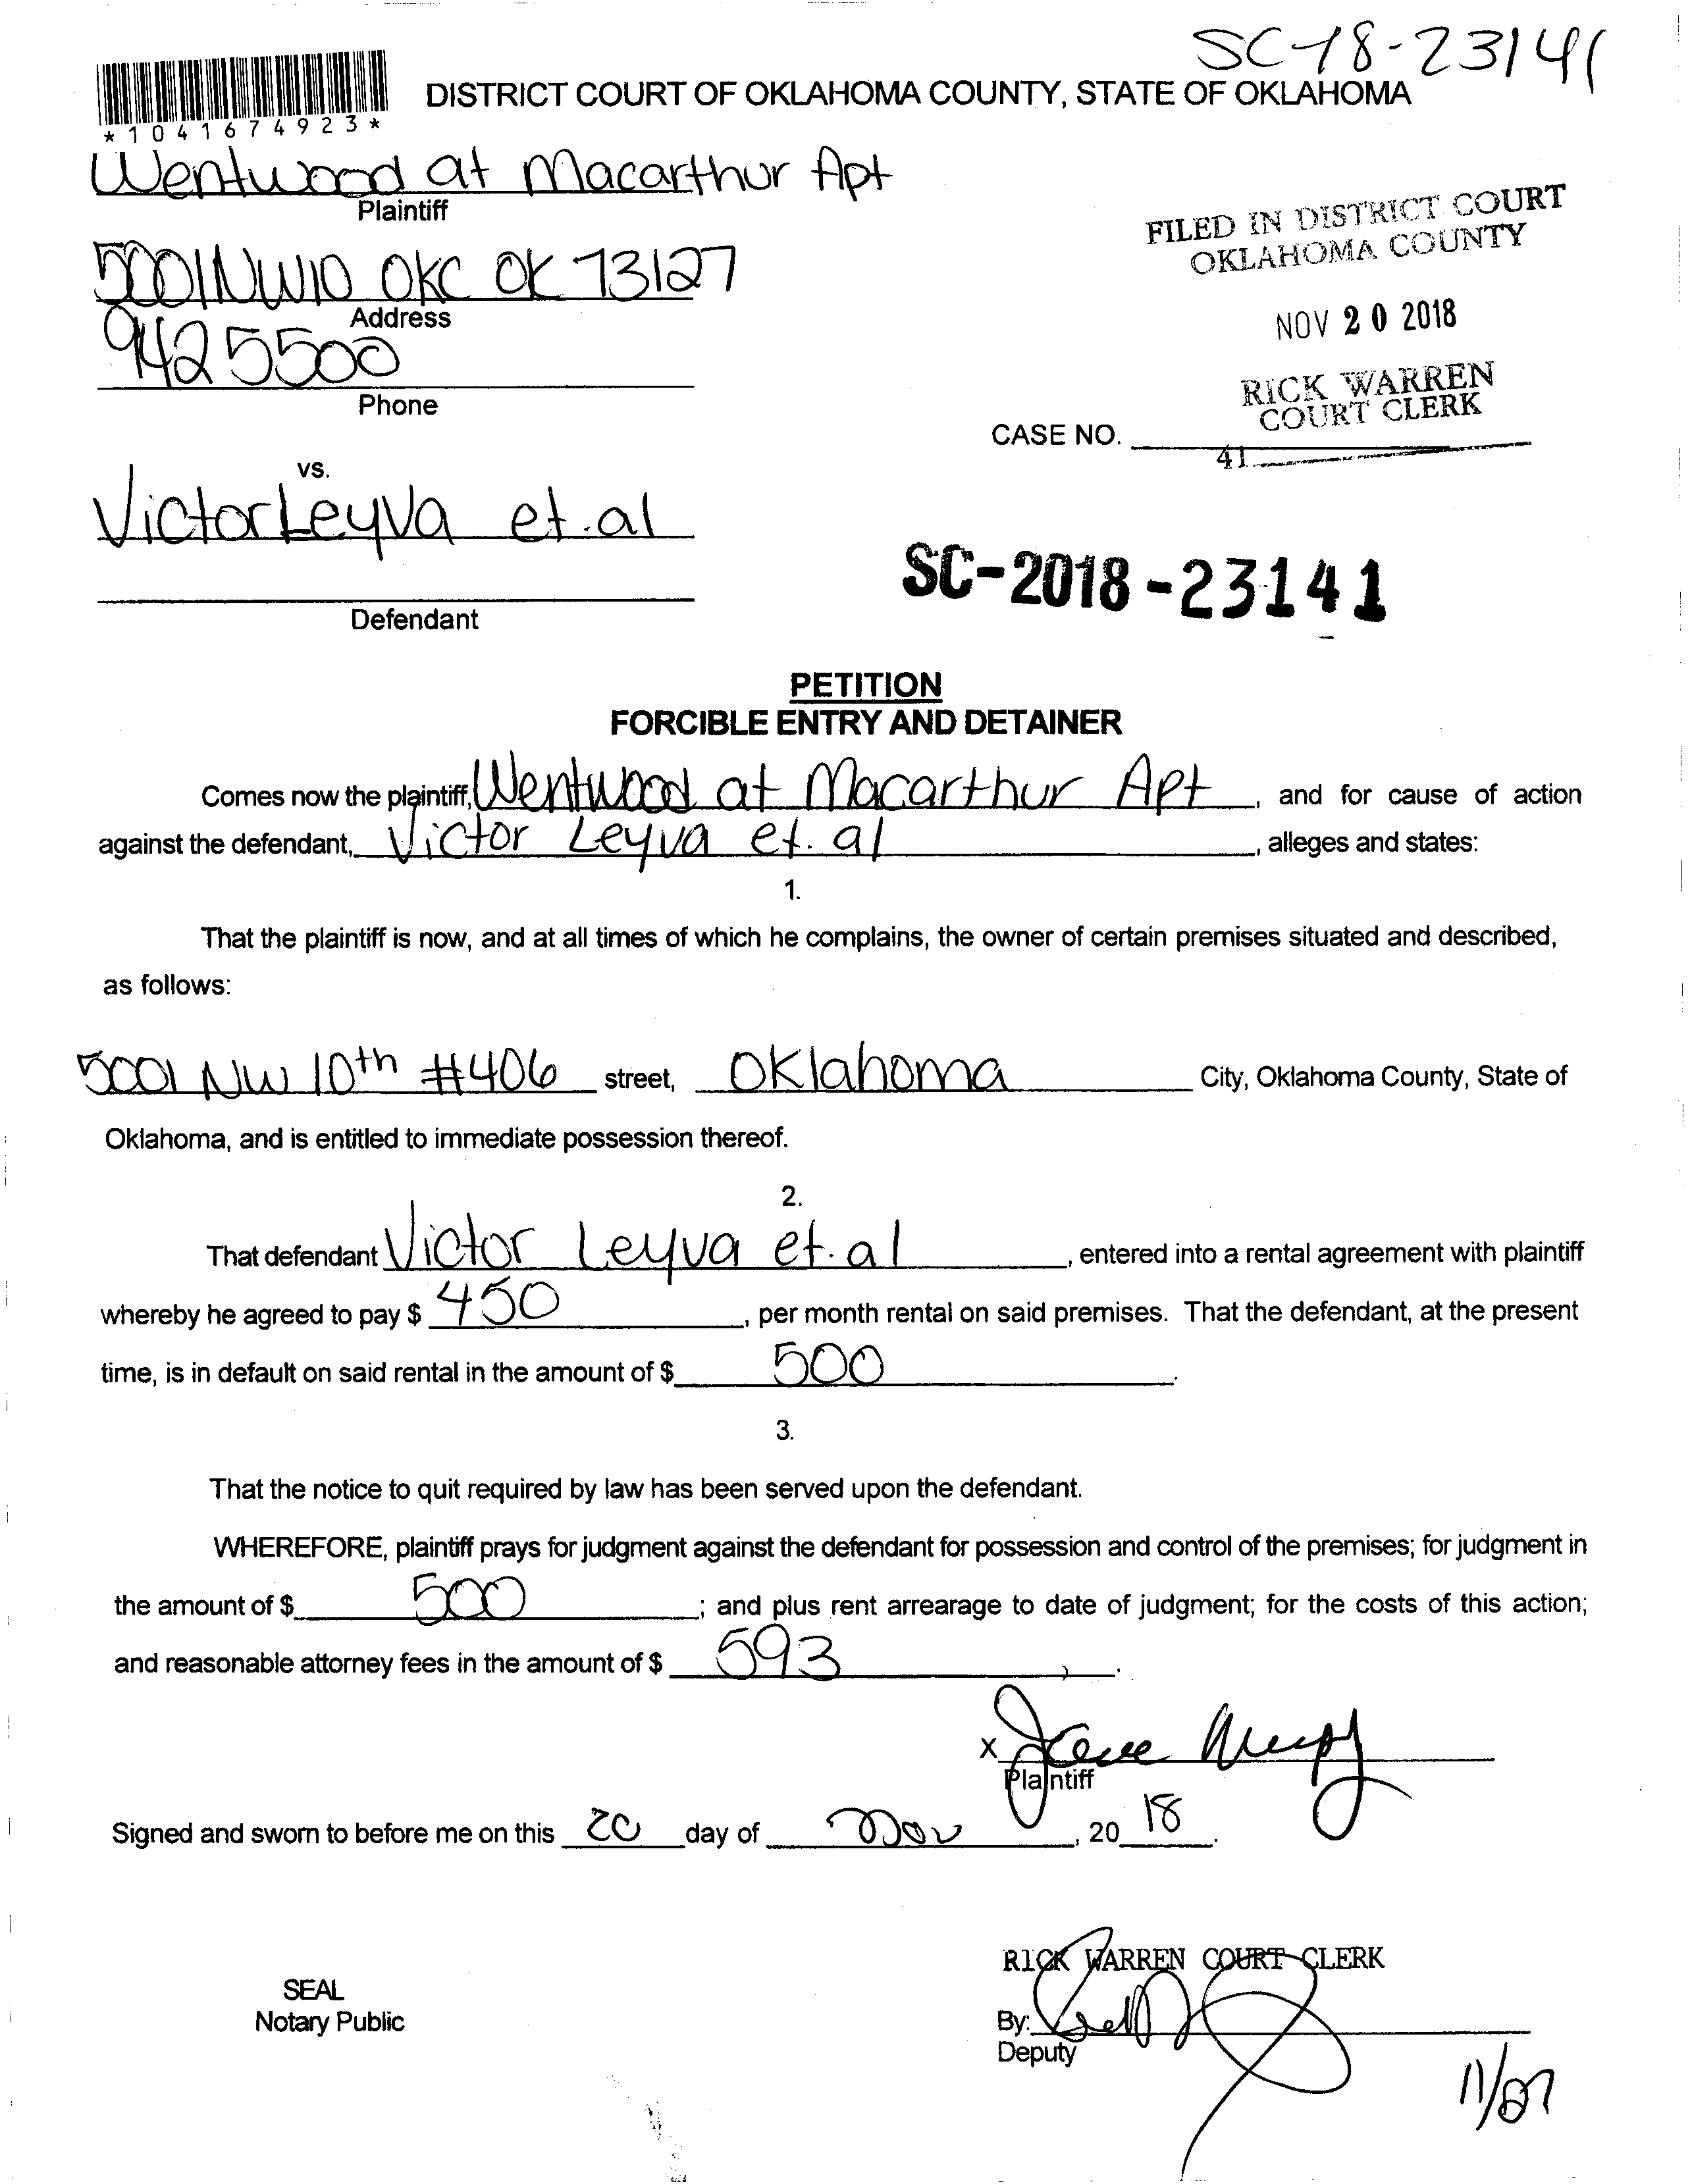 SC-18-23141
*1041674923*
DISTRICT COURT OF OKLAHOMA COUNTY, STATE OF OKLAHOMA
Wentwood at Macarthur Apt
Plaintiff
5001 NW10 OKC OK 73127
Address
9425500
Phone
FILED IN DISTRICT COURT
OKLAHOMA COUNTY
NOV 20 2018
RICK WARREN
COURT CLERK
CASE NO.
41
vs.
Victor Leyva et.al
Defendant
SC-2018-23141
PETITION
FORCIBLE ENTRY AND DETAINER
Comes now the plaintiff, Wentwood at Macarthur Apt, and for cause of action
against the defendant, Victor Leyva et. al, alleges and states:
1.
That the plaintiff is now, and at all times of which he complains, the owner of certain premises situated and described,
as follows:
5001 NW 10th #406 street, Oklahoma City, Oklahoma County, State of
Oklahoma, and is entitled to immediate possession thereof.
2.
That defendant Victor Leyva et. al, entered into a rental agreement with plaintiff
whereby he agreed to pay $ 450, per month rental on said premises. That the defendant, at the present
time, is in default on said rental in the amount of $ 500.
3.
That the notice to quit required by law has been served upon the defendant.
WHEREFORE, plaintiff prays for judgment against the defendant for possession and control of the premises; for judgment in
the amount of $ 500; and plus rent arrearage to date of judgment; for the costs of this action;
and reasonable attorney fees in the amount of $ 593.
X
Plaintiff
Signed and sworn to before me on this 20 day of Nov, 20 18.
RICK WARREN COURT CLERK
SEAL
Notary Public
By:
Deputy
11/27